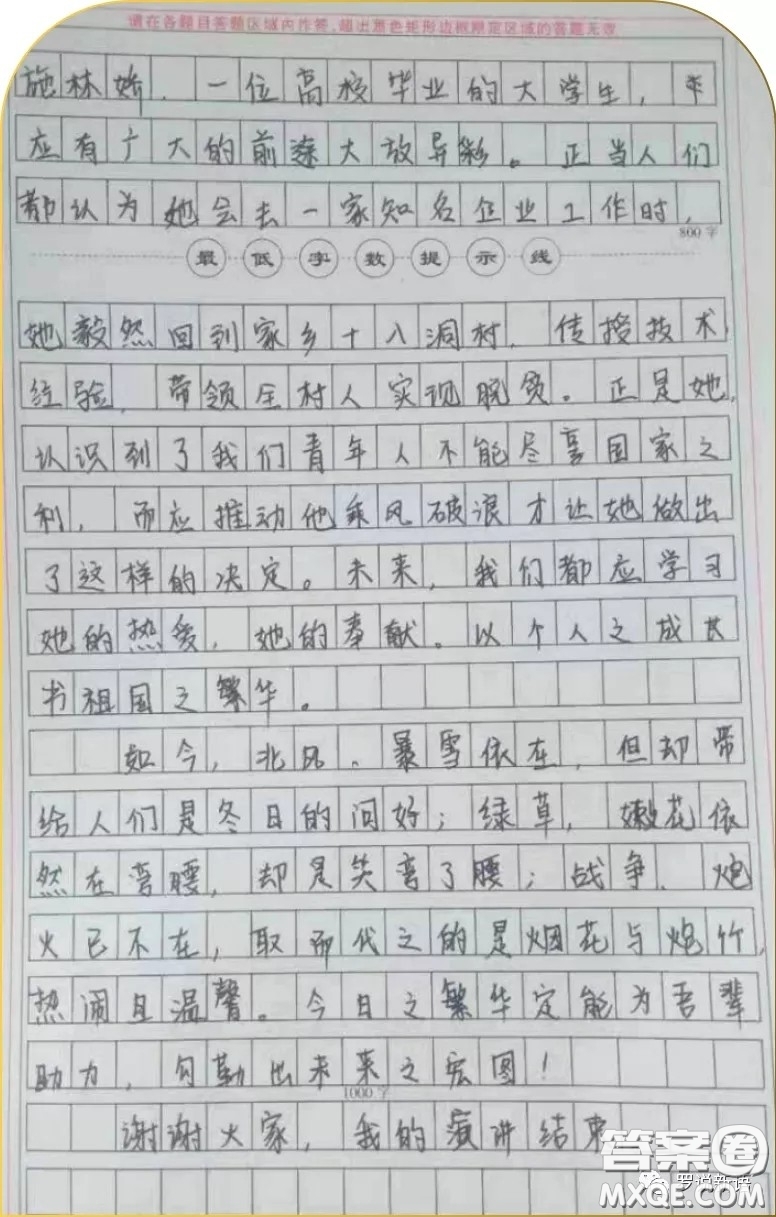 请在各题目答题区域内作答,超出黑色矩形边框限定区域的答题无效
施林娇,一位高校毕业的大学生,本
应有广大的前途大放异彩。正当人们
都认为她会去一家知名企业工作时,
800字
最低字数提示线
她毅然回到家乡十八洞村,传授技术
经验,带领全村人实现脱贫。正是她,
认识到了我们青年人不能尽享国家之
利,而应推动他乘风破浪才让她做出
了这样的决定。未来,我们都应学习
她的热爱,她的奉献。以个人之成长
书祖国之繁华。
如今,北风、暴雪依在,但却带
给人们是冬日的问好;绿草,嫩花依
然在弯腰,却是笑弯了腰;战争、炮
火已不在,取而代之的是烟花与炮竹,
热闹且温馨。今日之繁华定能为吾辈
助力,勾勒出未来之宏图!
1000字
谢谢大家,我的演讲结束
答案圈
MXQE.COM